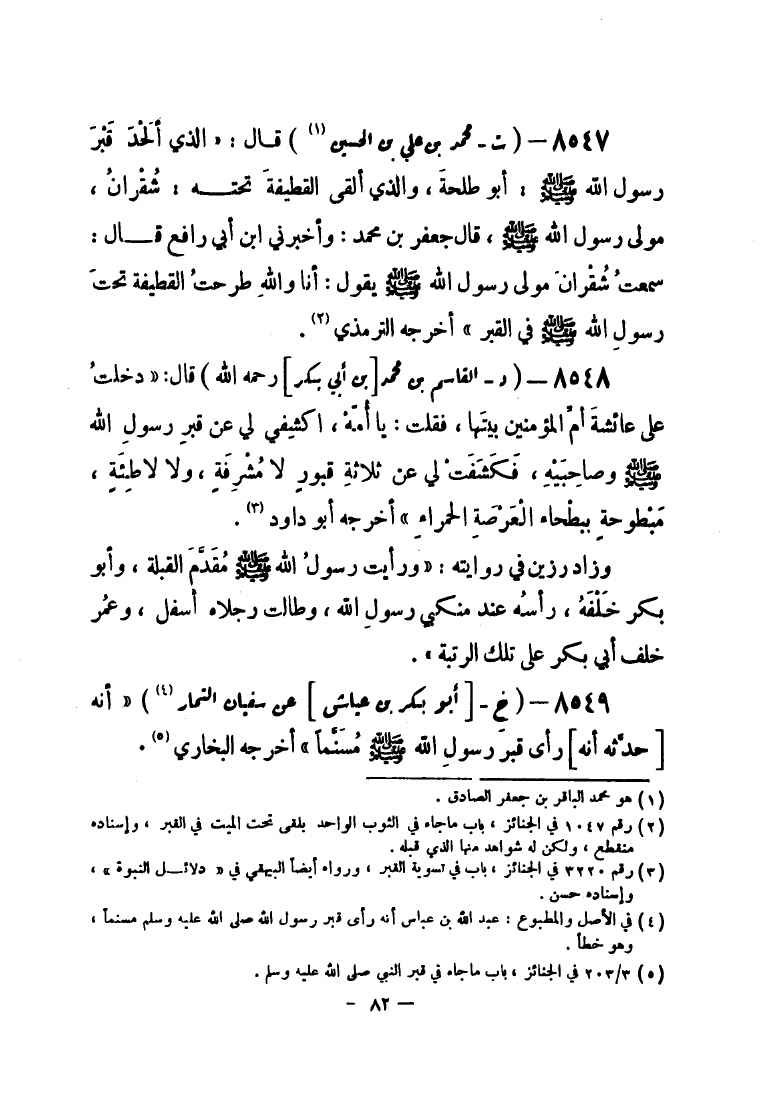 ٨٥٤٧ – ( ت - محمد بن علي بن الحسين (١) ) قال : « الذي أَلْحَدَ قَبْرَ
رسول الله ﷺ : أبو طلحةَ ، والذي ألقى القطيفةَ تحته : شُقْرانُ ،
مولى رسول الله ﷺ ، قال جعفر بن محمد : وأخبرني ابن أبي رافع قال :
سمعتُ شُقْرانَ مولى رسول الله ﷺ يقول : أنا واللهِ طرحتُ القطيفة تحتَ
رسولِ الله ﷺ في القبر » أخرجه الترمذي (٢) .
٨٥٤٨ – ( د - القاسم بن محمد [بن أبي بكر] رحمه الله ) قال : « دخلتُ
على عائشةَ أمِّ المؤمنين بيتَها ، فقلت : يا أُمَّهْ ، اكشِفي لي عن قبرِ رسولِ الله
ﷺ وصاحِبَيْهِ ، فَكَشَفَتْ لي عن ثلاثةِ قبورٍ لا مُشْرِفَةٍ ، ولا لاطِئَةٍ ،
مَبْطوحةٍ ببطْحاء الْعَرْصَةِ الحمراءِ » أخرجه أبو داود (٣) .
وزاد رزين في روايته : « ورأيت رسولُ الله ﷺ مُقَدَّمَ القبلة ، وأبو
بكر خَلْفَهُ ، رأسُه عند منكبي رسولِ الله ، وطالت رجلاه أسفل ، وعمُر
خلف أبي بكر على تلك الرتبة » .
٨٥٤٩ – ( خ - [ أبو بكر بن عياش ] عن سفيان التمار (٤) ) « أنه
[ حدَّثه أنه ] رأى قبرَ رسولِ الله ﷺ مُسَنَّماً » أخرجه البخاري (٥) .
(١) هو محمد الباقر بن جعفر الصادق .
(٢) رقم ١٠٤٧ في الجنائز ، باب ماجاء في الثوب الواحد يلقى تحت الميت في القبر ، وإسناده
منقطع ، ولكن له شواهد منها الذي قبله .
(٣) رقم ٣٢٢٠ في الجنائز ، باب في تسوية القبر ، ورواه أيضاً البيهقي في « دلائل النبوة » ،
وإسناده حسن .
(٤) في الأصل والمطبوع : عبد الله بن عباس أنه رأى قبر رسول الله صلى الله عليه وسلم مسنماً ،
وهو خطأ .
(٥) ٢٠٣/٣ في الجنائز ، باب ماجاء في قبر النبي صلى الله عليه وسلم .
– ٨٢ –